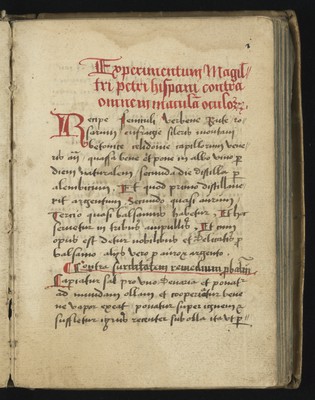 Experimentum Magis//
tri petri hispani contra
omnem maculã oculoꝝ.
Recipe feniculi Verbene Rute ro//
sarum eufragie sileris montani
betonice celidonie capillorum vene//
ris añ quassa bene et pone in albo vino p
diem naturalem secunda die distilla p
alembicum. Et quod primo distillaue//
rit argentum Secundo quasi aurum
Tercio quasi balsamus habetur. Et hec
seruetur in tribus ampullis. Et cum
opus est detur nobilibus et delicatis p
balsamo alijs vero p auro et argento.
Contra surditatem remedium
Capiatur sal pro vno denario et ponat
ad mundam ollam et cooperiatur bene
ne vapor exeat ponatur super ignem et
suffletur ignis recenter sub olla ita vt p